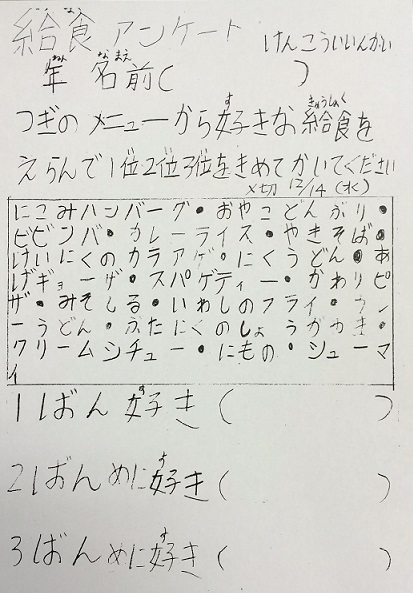 給食 アンケート けんこういいんかい
年 名前( )
つぎのメニューから好きな給食を
えらんで1位2位3位をきめてかいてください
〆切 12/14(水)
にこみハンバーグ・おやこどんぶり・
ビビンバ・カレーライス・やきそば・
けいにくのカラアゲ・にくうどん・あ
げギョーザ・スパゲティー・かわりピ
ザ・みそしる・いわしのフライ・カレ
ーうどん・ぶたにくのしょうがやき・
クリームシチュー・にもの・シューマ
イ
1ばん好き( )
2ばんめに好き( )
3ばんめに好き( )